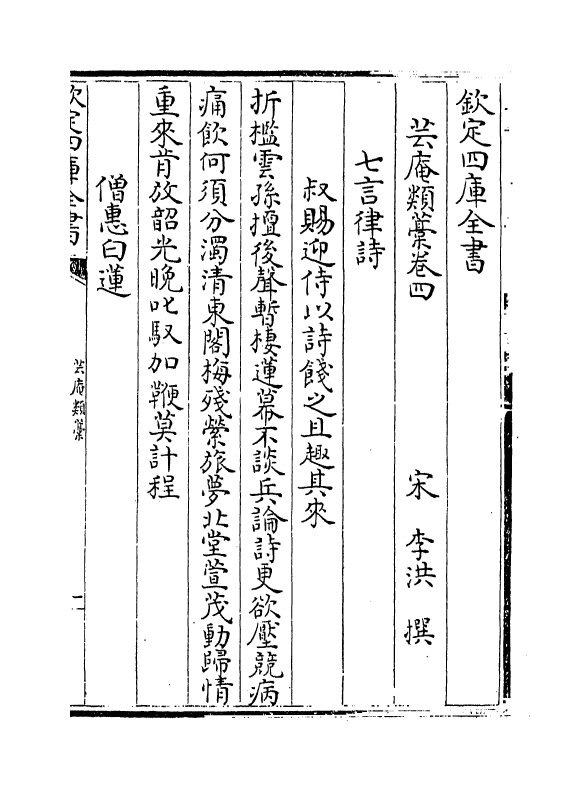 欽定四庫全書
芸庵類藁卷四
宋 李洪 撰
七言律詩
叔賜迎侍以詩餞之且趣其來
折檻雲孫擅後聲暫棲蓮幕不談兵論詩更欲壓競病
痛飲何須分濁清東閣梅殘縈旅夢北堂萱茂動歸情
重來肯放韶光晚叱馭加鞭莫計程
僧惠白蓮
欽定四庫全書
芸庵類藁